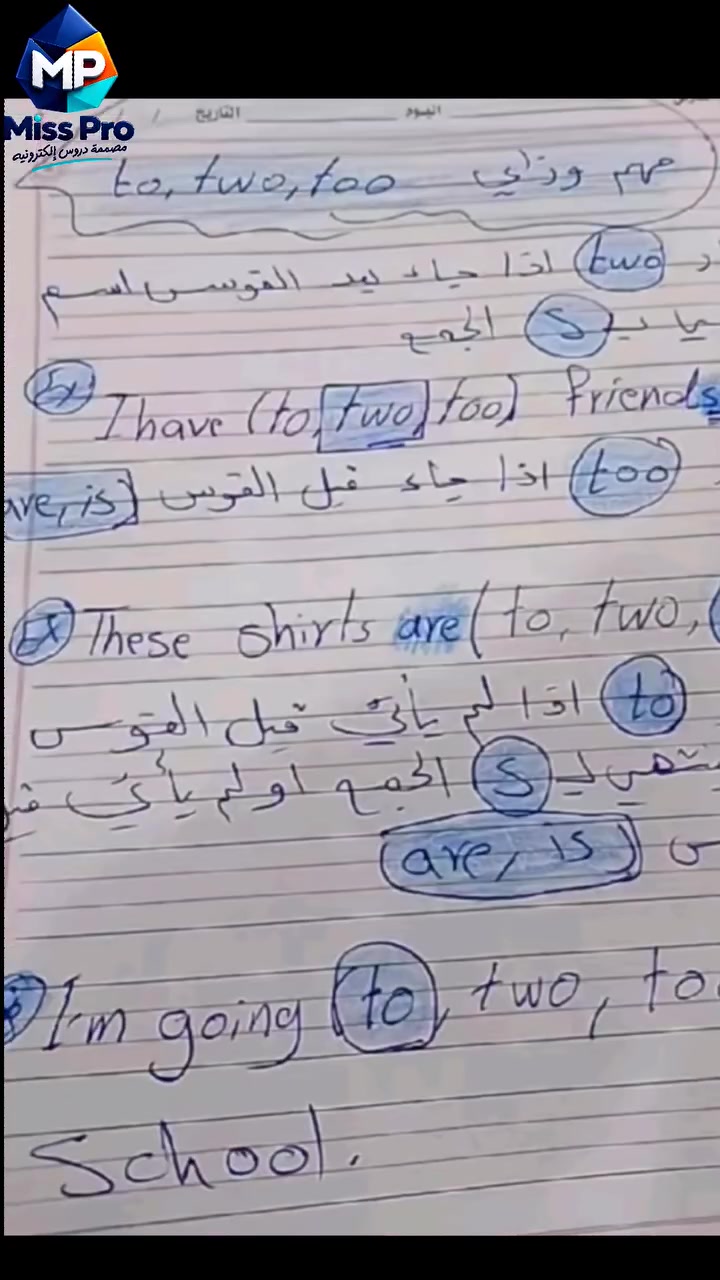 MP
Miss Pro
مصممة دروس إلكترونيه
اليوم التاريخ / /
مهم وزاري to, two, too
two اذا جاء بعد القوس اسم
بـ s الجمع
Ex I have (to, two, too) friends
too اذا جاء قبل القوس are, is)
Ex These shirts are (to, two,
to اذا لم يأتي قبل القوس
ينتهي لـ s الجمع او لم يأتي
(are, is)
I'm going (to, two, to
School.